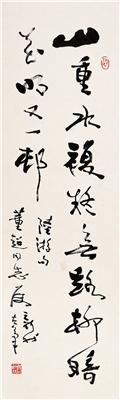 山重水複疑無路柳暗
花明又一邨
陸游句
董
同志